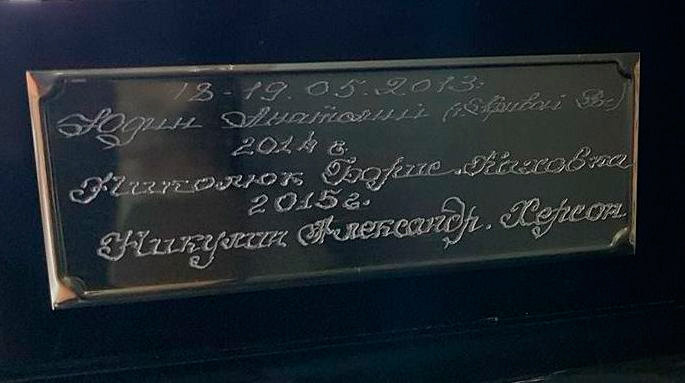 18-19.05.2013г.
Юдин Анатолий (г. Кривой Рог)
2014 г.
Николюк Борис. Каховка
2015г.
Никулин Александр. Херсон